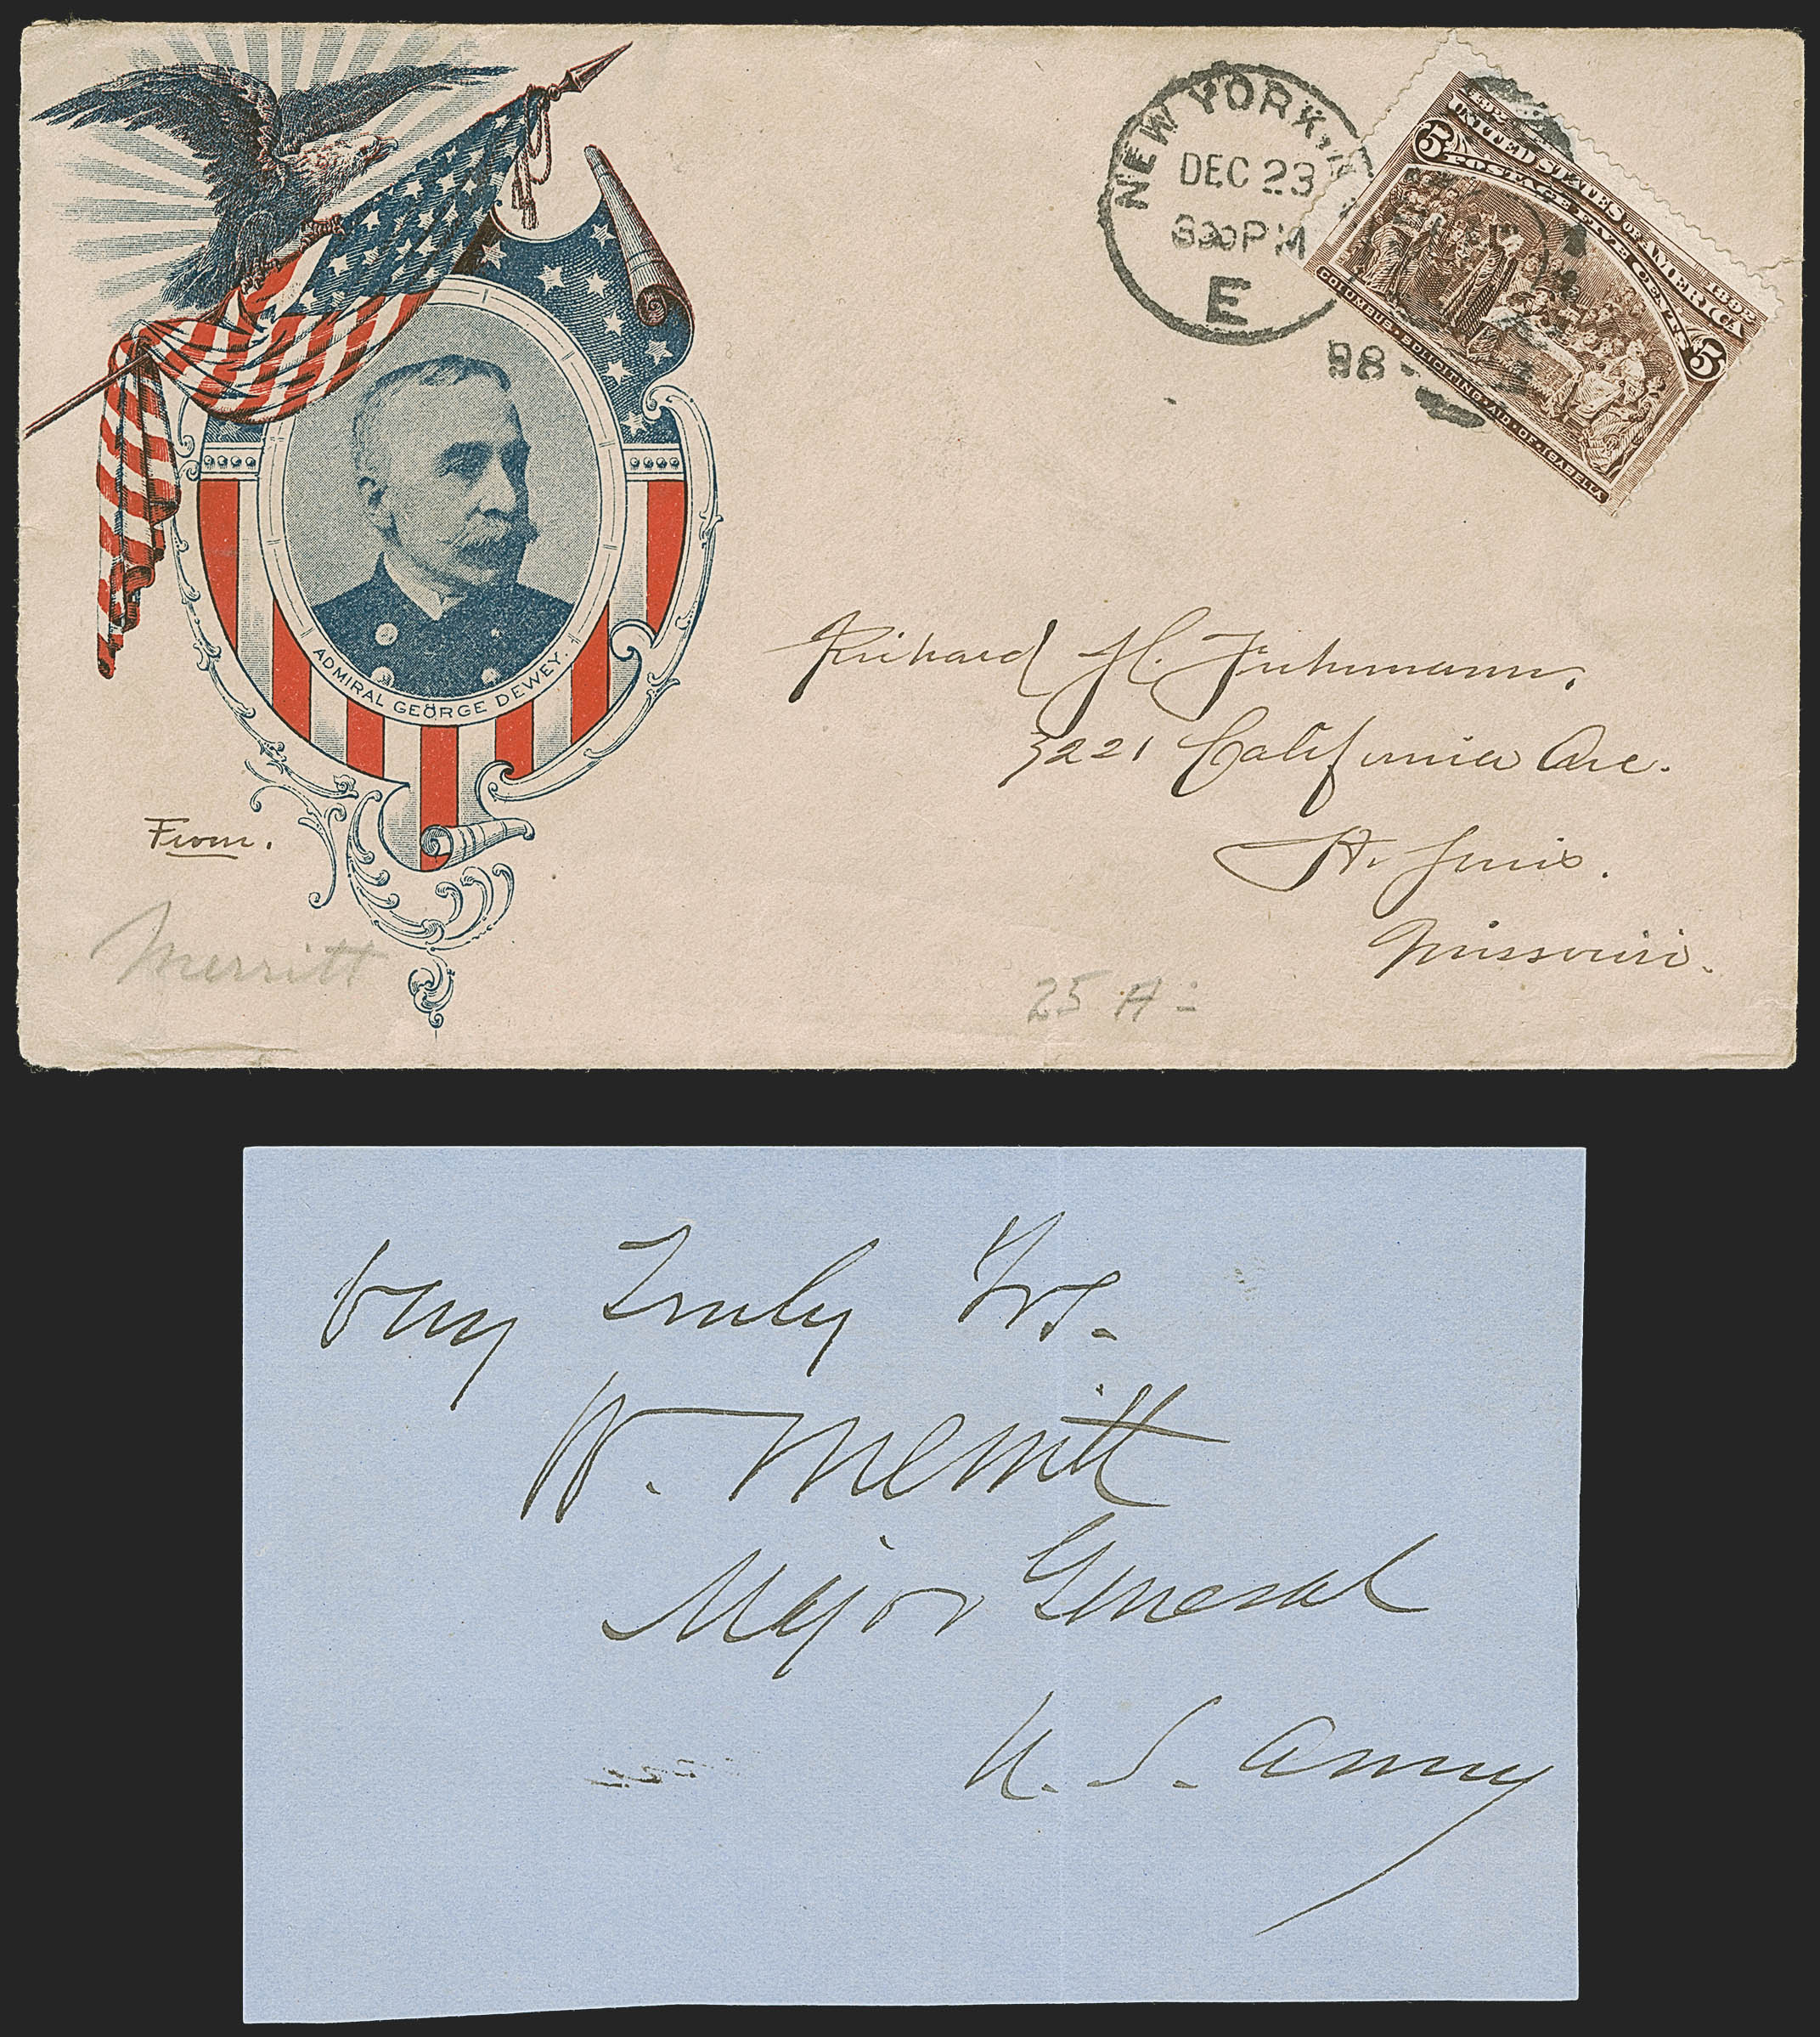 ADMIRAL GEORGE DEWEY.
NEW YORK, N
DEC 23
830PM
E
98
1492 UNITED STATES OF AMERICA 1892
5 POSTAGE FIVE CENTS 5
COLUMBUS SOLICITING AID OF ISABELLA
Richard H. Fuhrmann,
3221 California Ave.
St. Louis.
Missouri.
From.
Merritt
25 A
Very Truly Yrs.
W. Merritt
Major General
U. S. Army